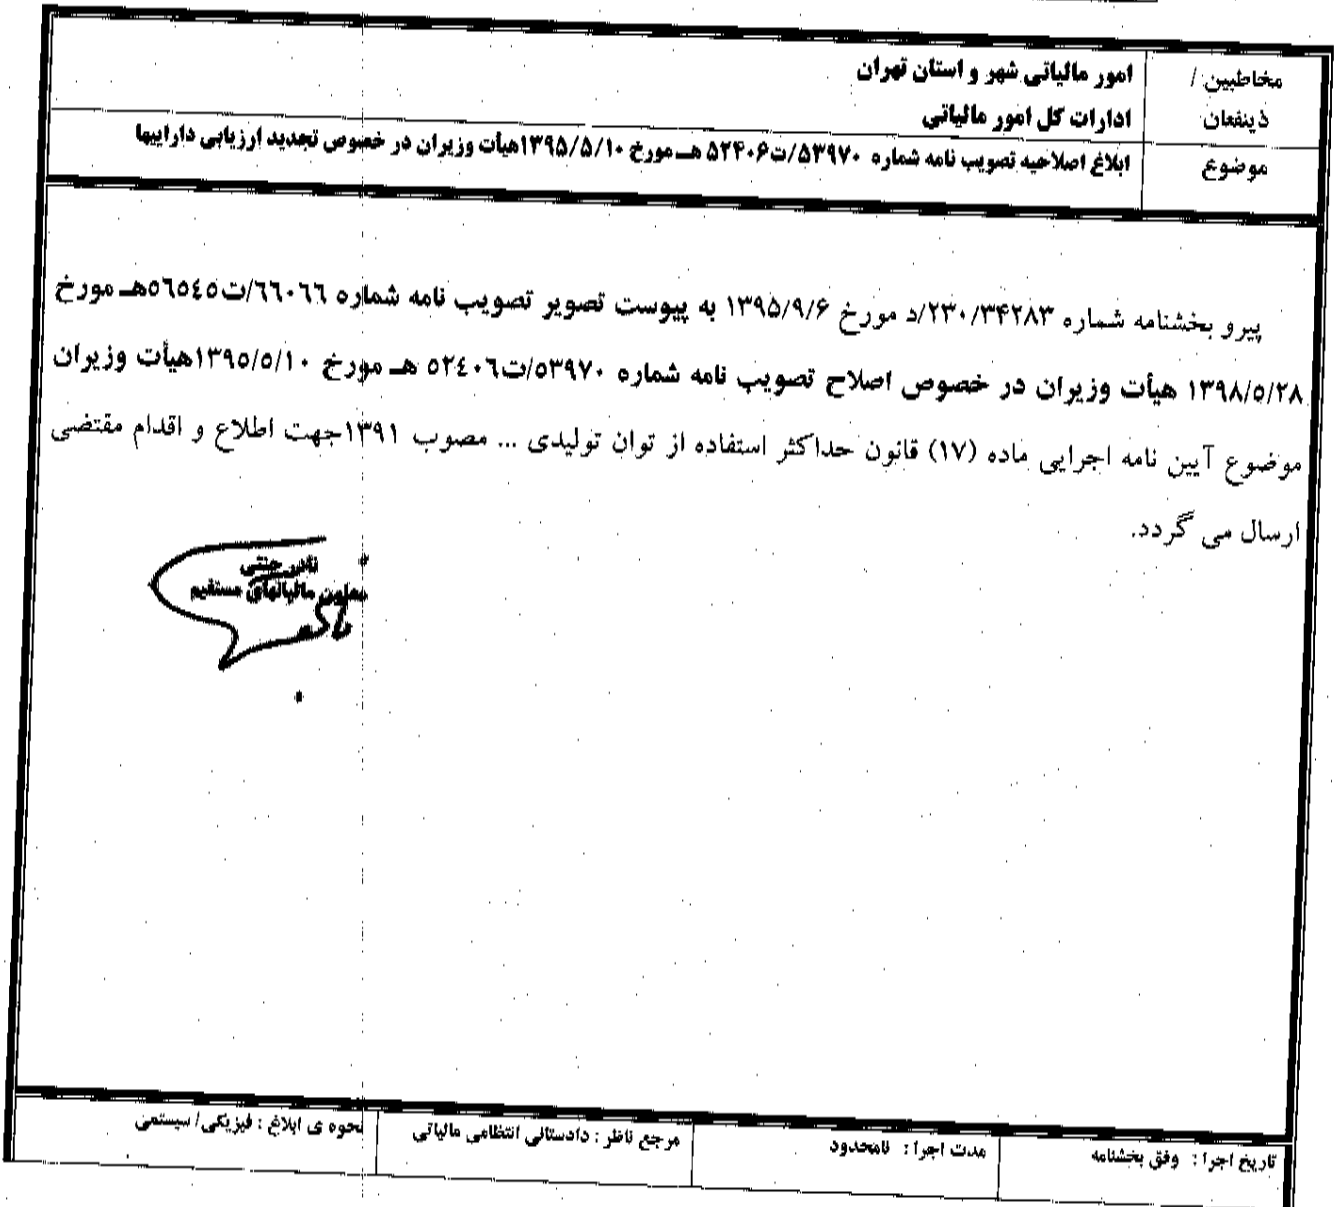 مخاطبین /
ذینفعان
امور مالیاتی شهر و استان تهران
ادارات کل امور مالیاتی
موضوع
ابلاغ اصلاحیه تصویب نامه شماره ۵۳۹۷۰/ت۵۲۴۰۶ هـ مورخ ۱۳۹۵/۵/۱۰هیأت وزیران در خصوص تجدید ارزیابی داراییها
پیرو بخشنامه شماره ۲۳۰/۳۴۲۸۳/د مورخ ۱۳۹۵/۹/۶ به پیوست تصویر تصویب نامه شماره ۶۶۰۶۶/ت۵۶۵۴۵هـ مورخ
۱۳۹۸/۵/۲۸ هیأت وزیران در خصوص اصلاح تصویب نامه شماره ۵۳۹۷۰/ت۵۲۴۰۶ هـ مورخ ۱۳۹۵/۵/۱۰هیأت وزیران
موضوع آیین نامه اجرایی ماده (۱۷) قانون حداکثر استفاده از توان تولیدی ... مصوب ۱۳۹۱جهت اطلاع و اقدام مقتضی
ارسال می گردد.
نادر جنتی
معاون مالیاتهای مستقیم
تاریخ اجرا : وفق بخشنامه
مدت اجرا : نامحدود
مرجع ناظر : دادستانی انتظامی مالیاتی
نحوه ی ابلاغ : فیزیکی/ سیستمی